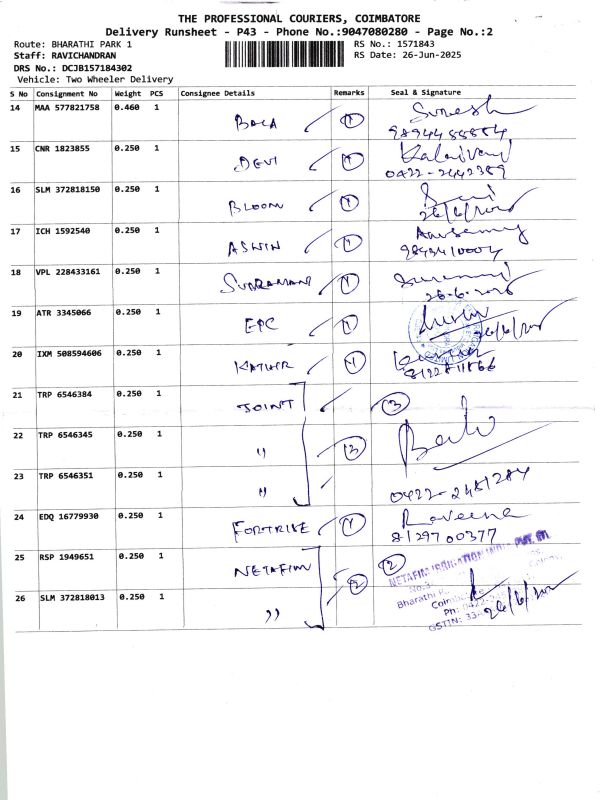 THE PROFESSIONAL COURIERS, COIMBATORE
Delivery Runsheet - P43 - Phone No.:9047080280 - Page No.:2
Route: BHARATHI PARK 1 RS No.: 1571843
Staff: RAVICHANDRAN RS Date: 26-Jun-2025
DRS No.: DCJB157184302
Vehicle: Two Wheeler Delivery
S No Consignment No Weight PCS Consignee Details Remarks Seal & Signature
14 MAA 577821758 0.460 1 BALA 1 Suresh
15 CNR 1823855 0.250 1 DEVI 1 Kalaivani
0422-2442389
16 SLM 372818150 0.250 1 BLOOM 1
26/6/2025
17 ICH 1592540 0.250 1 ASWIN 1
18 VPL 228433161 0.250 1 SUBRAMANI 1
19 ATR 3345066 0.250 1 EPC 1
26/6/2025
20 IXM 508594606 0.250 1 KATHIR 1
21 TRP 6546384 0.250 1 JOINT 3
22 TRP 6546345 0.250 1 " 3
23 TRP 6546351 0.250 1 "
0422-2451284
24 EDQ 16779930 0.250 1 FORTRISE 1 Raveena
8129700377
25 RSP 1949651 0.250 1 NETAFIM 2 2
NETAFIM IRRIGATION INDIA PVT. LTD.
Bharathi
26 SLM 372818013 0.250 1 "
26/6/2025